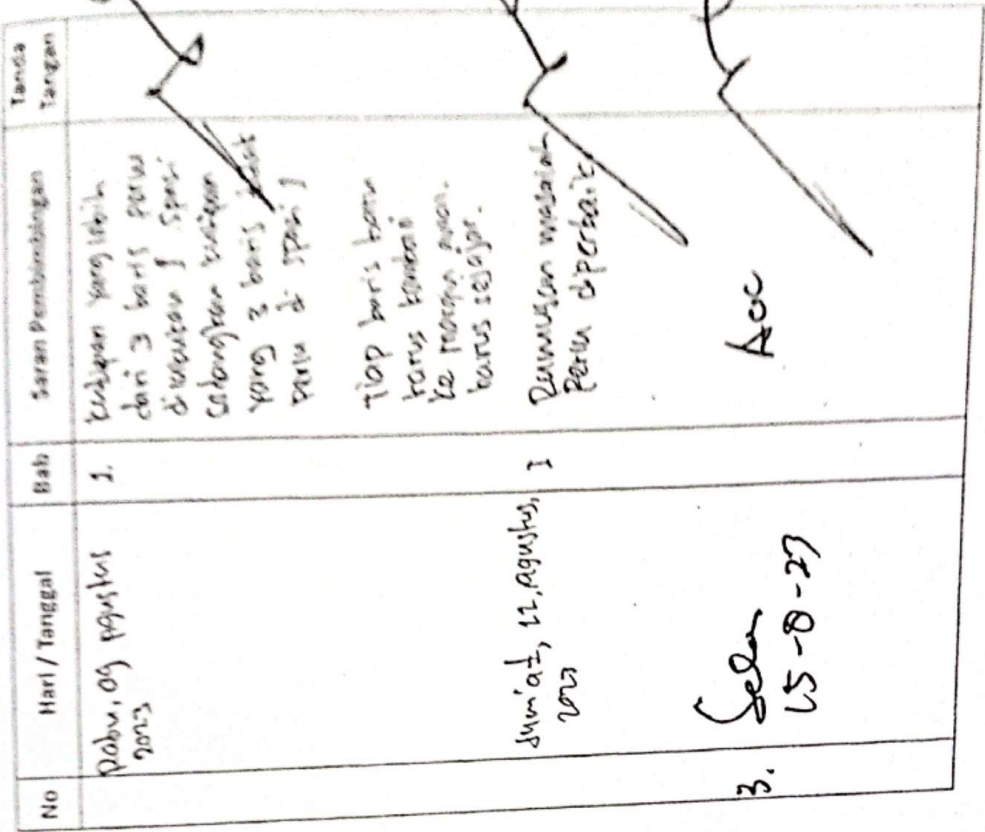 No Hari / Tanggal Bab Saran Pembimbingan Tanda Tangan
Rabu, 09 Agustus 2023
1.
kutipan yang lebih
dari 3 baris perlu
1 spasi
sedangkan kutipan
yang 3 baris
perlu di spasi 1
Tiap baris
harus
ke margin
harus sejajar.
Jum'at, 11, Agustus,
2023
I
Rumusan masalah
Perlu diperbaiki
3.
Selasa
15-8-23
Acc